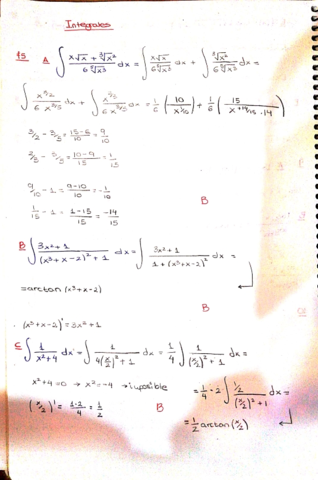 Integrales
45 A ∫ (x√x + ∛x²)/(6 ⁵√x³) dx = ∫ (x√x)/(6 ⁵√x³) dx + ∫ (∛x²)/(6 ⁵√x³) dx =
∫ x^(3/2)/(6 x^(3/5)) dx + ∫ x^(2/3)/(6 x^(3/5)) dx = 1/6 (10/x^(1/10)) + 1/6 (15/(x^(14/15) · 14))
3/2 - 3/5 = (15-6)/10 = 9/10
2/3 - 3/5 = (10-9)/15 = 1/15
9/10 - 1 = (9-10)/10 = -1/10
1/15 - 1 = (1-15)/15 = -14/15
B
B ∫ (3x²+1)/((x³+x-2)²+1) dx = ∫ (3x²+1)/(1+(x³+x-2)²) dx =
= arctan (x³+x-2)
B
(x³+x-2)' = 3x²+1
C ∫ 1/(x²+4) dx = ∫ 1/(4(x/2)²+1) dx = 1/4 ∫ 1/((x/2)²+1) dx =
x²+4=0 → x²=-4 → imposible
= 1/4 · 2 ∫ (1/2)/((x/2)²+1) dx =
(x/2)' = (1·2)/4 = 1/2
B
= 1/2 arctan (x/2)